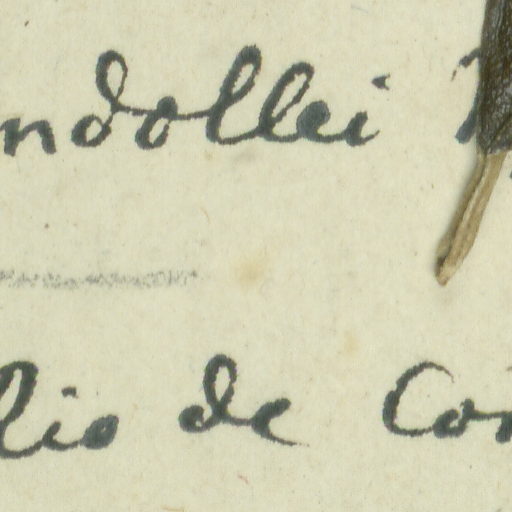 ndollei
lio de Con